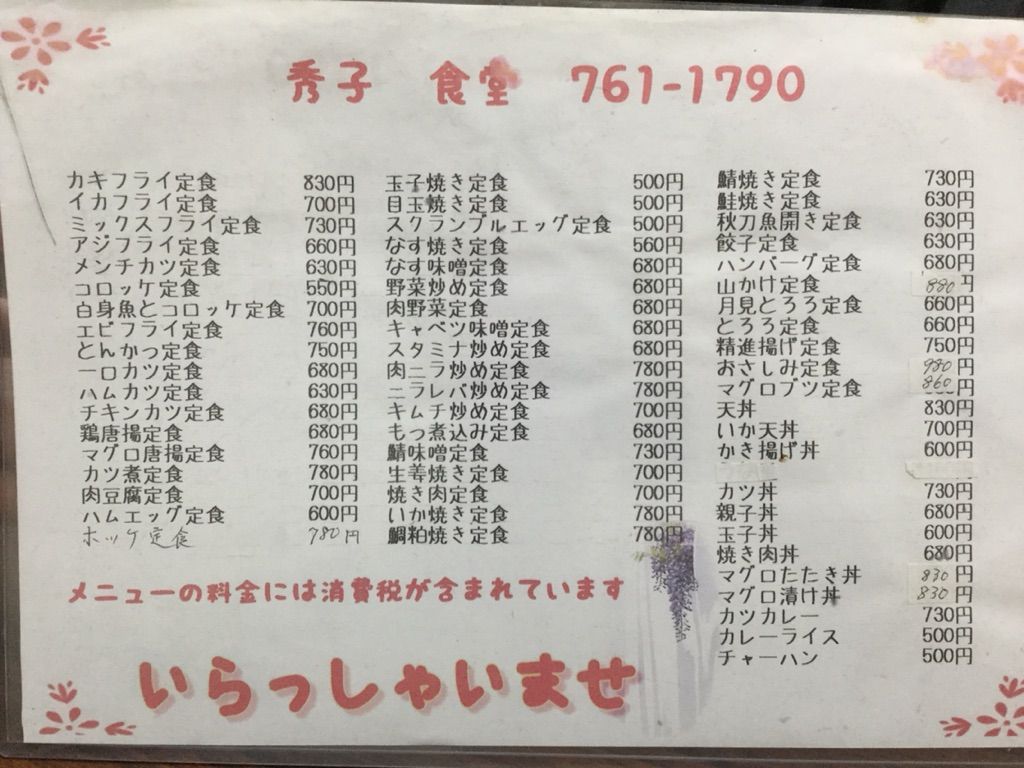 秀子 食堂 761-1790
カキフライ定食 830円
イカフライ定食 700円
ミックスフライ定食 730円
アジフライ定食 660円
メンチカツ定食 630円
コロッケ定食 550円
白身魚とコロッケ定食 700円
エビフライ定食 760円
とんかつ定食 750円
一口カツ定食 680円
ハムカツ定食 630円
チキンカツ定食 680円
鶏唐揚定食 680円
マグロ唐揚定食 760円
カツ煮定食 780円
肉豆腐定食 700円
ハムエッグ定食 600円
ホッケ定食 780円
玉子焼き定食 500円
目玉焼き定食 500円
スクランブルエッグ定食 500円
なす焼き定食 560円
なす味噌定食 680円
野菜炒め定食 680円
肉野菜定食 680円
キャベツ味噌定食 680円
スタミナ炒め定食 680円
肉ニラ炒め定食 780円
ニラレバ炒め定食 780円
キムチ炒め定食 700円
もつ煮込み定食 680円
鯖味噌定食 730円
生姜焼き定食 700円
焼き肉定食 700円
いか焼き定食 780円
鯛粕焼き定食 780円
鯖焼き定食 730円
鮭焼き定食 630円
秋刀魚開き定食 630円
餃子定食 630円
ハンバーグ定食 680円
山かけ定食 880円
月見とろろ定食 660円
とろろ定食 660円
精進揚げ定食 750円
おさしみ定食 980円
マグロブツ定食 860円
天丼 830円
いか天丼 700円
かき揚げ丼 600円
カツ丼 730円
親子丼 680円
玉子丼 600円
焼き肉丼 680円
マグロたたき丼 830円
マグロ漬け丼 830円
カツカレー 730円
カレーライス 500円
チャーハン 500円
メニューの料金には消費税が含まれています
いらっしゃいませ